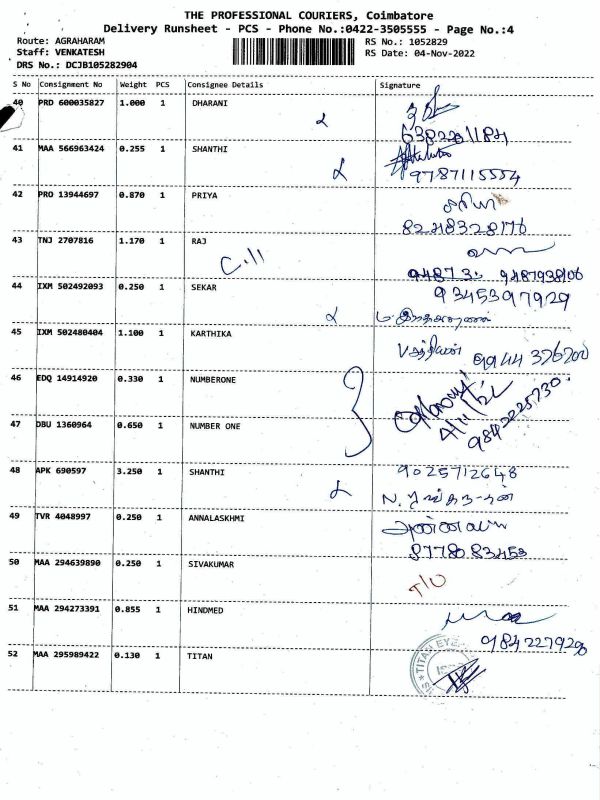 THE PROFESSIONAL COURIERS, Coimbatore
Delivery Runsheet - PCS - Phone No.:0422-3505555 - Page No.:4
Route: AGRAHARAM
Staff: VENKATESH
DRS No.: DCJB105282904
RS No.: 1052829
RS Date: 04-Nov-2022
S No Consignment No Weight PCS Consignee Details Signature
40 PRD 600035827 1.000 1 DHARANI
41 MAA 566963424 0.255 1 SHANTHI
9787115554
42 PRO 13944697 0.870 1 PRIYA
பிரியா
8248328176
43 TNJ 2707816 1.170 1 RAJ
9487938106
44 IXM 502492093 0.250 1 SEKAR
9345397929
45 IXM 502480404 1.100 1 KARTHIKA
46 EDQ 14914920 0.330 1 NUMBERONE
4/11/22
9842225730.
47 DBU 1360964 0.650 1 NUMBER ONE
48 APK 690597 3.250 1 SHANTHI
9025712648
49 TVR 4048997 0.250 1 ANNALASKHMI
8777083453
50 MAA 294639890 0.250 1 SIVAKUMAR
51 MAA 294273391 0.855 1 HINDMED
984227920
52 MAA 295989422 0.130 1 TITAN
TITAN EYE